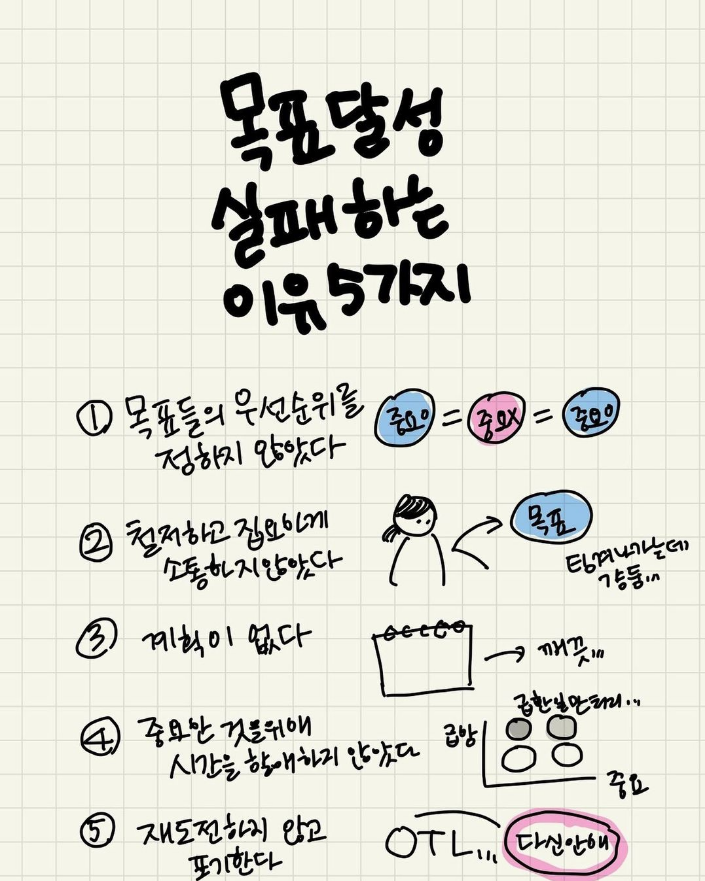 목표달성
실패하는
이유 5가지
① 목표들의 우선순위를
정하지 않았다
중요O = 중요X = 중요O
② 철저하고 집요하게
소통하지 않았다
목표
튕겨나가는데
③ 계획이 없다
깨끗...
④ 중요한 것을 위해
시간을 할애하지 않았다
급한일만처리...
급함
중요
⑤ 재도전하지 않고
포기한다
OTL...
다신안해